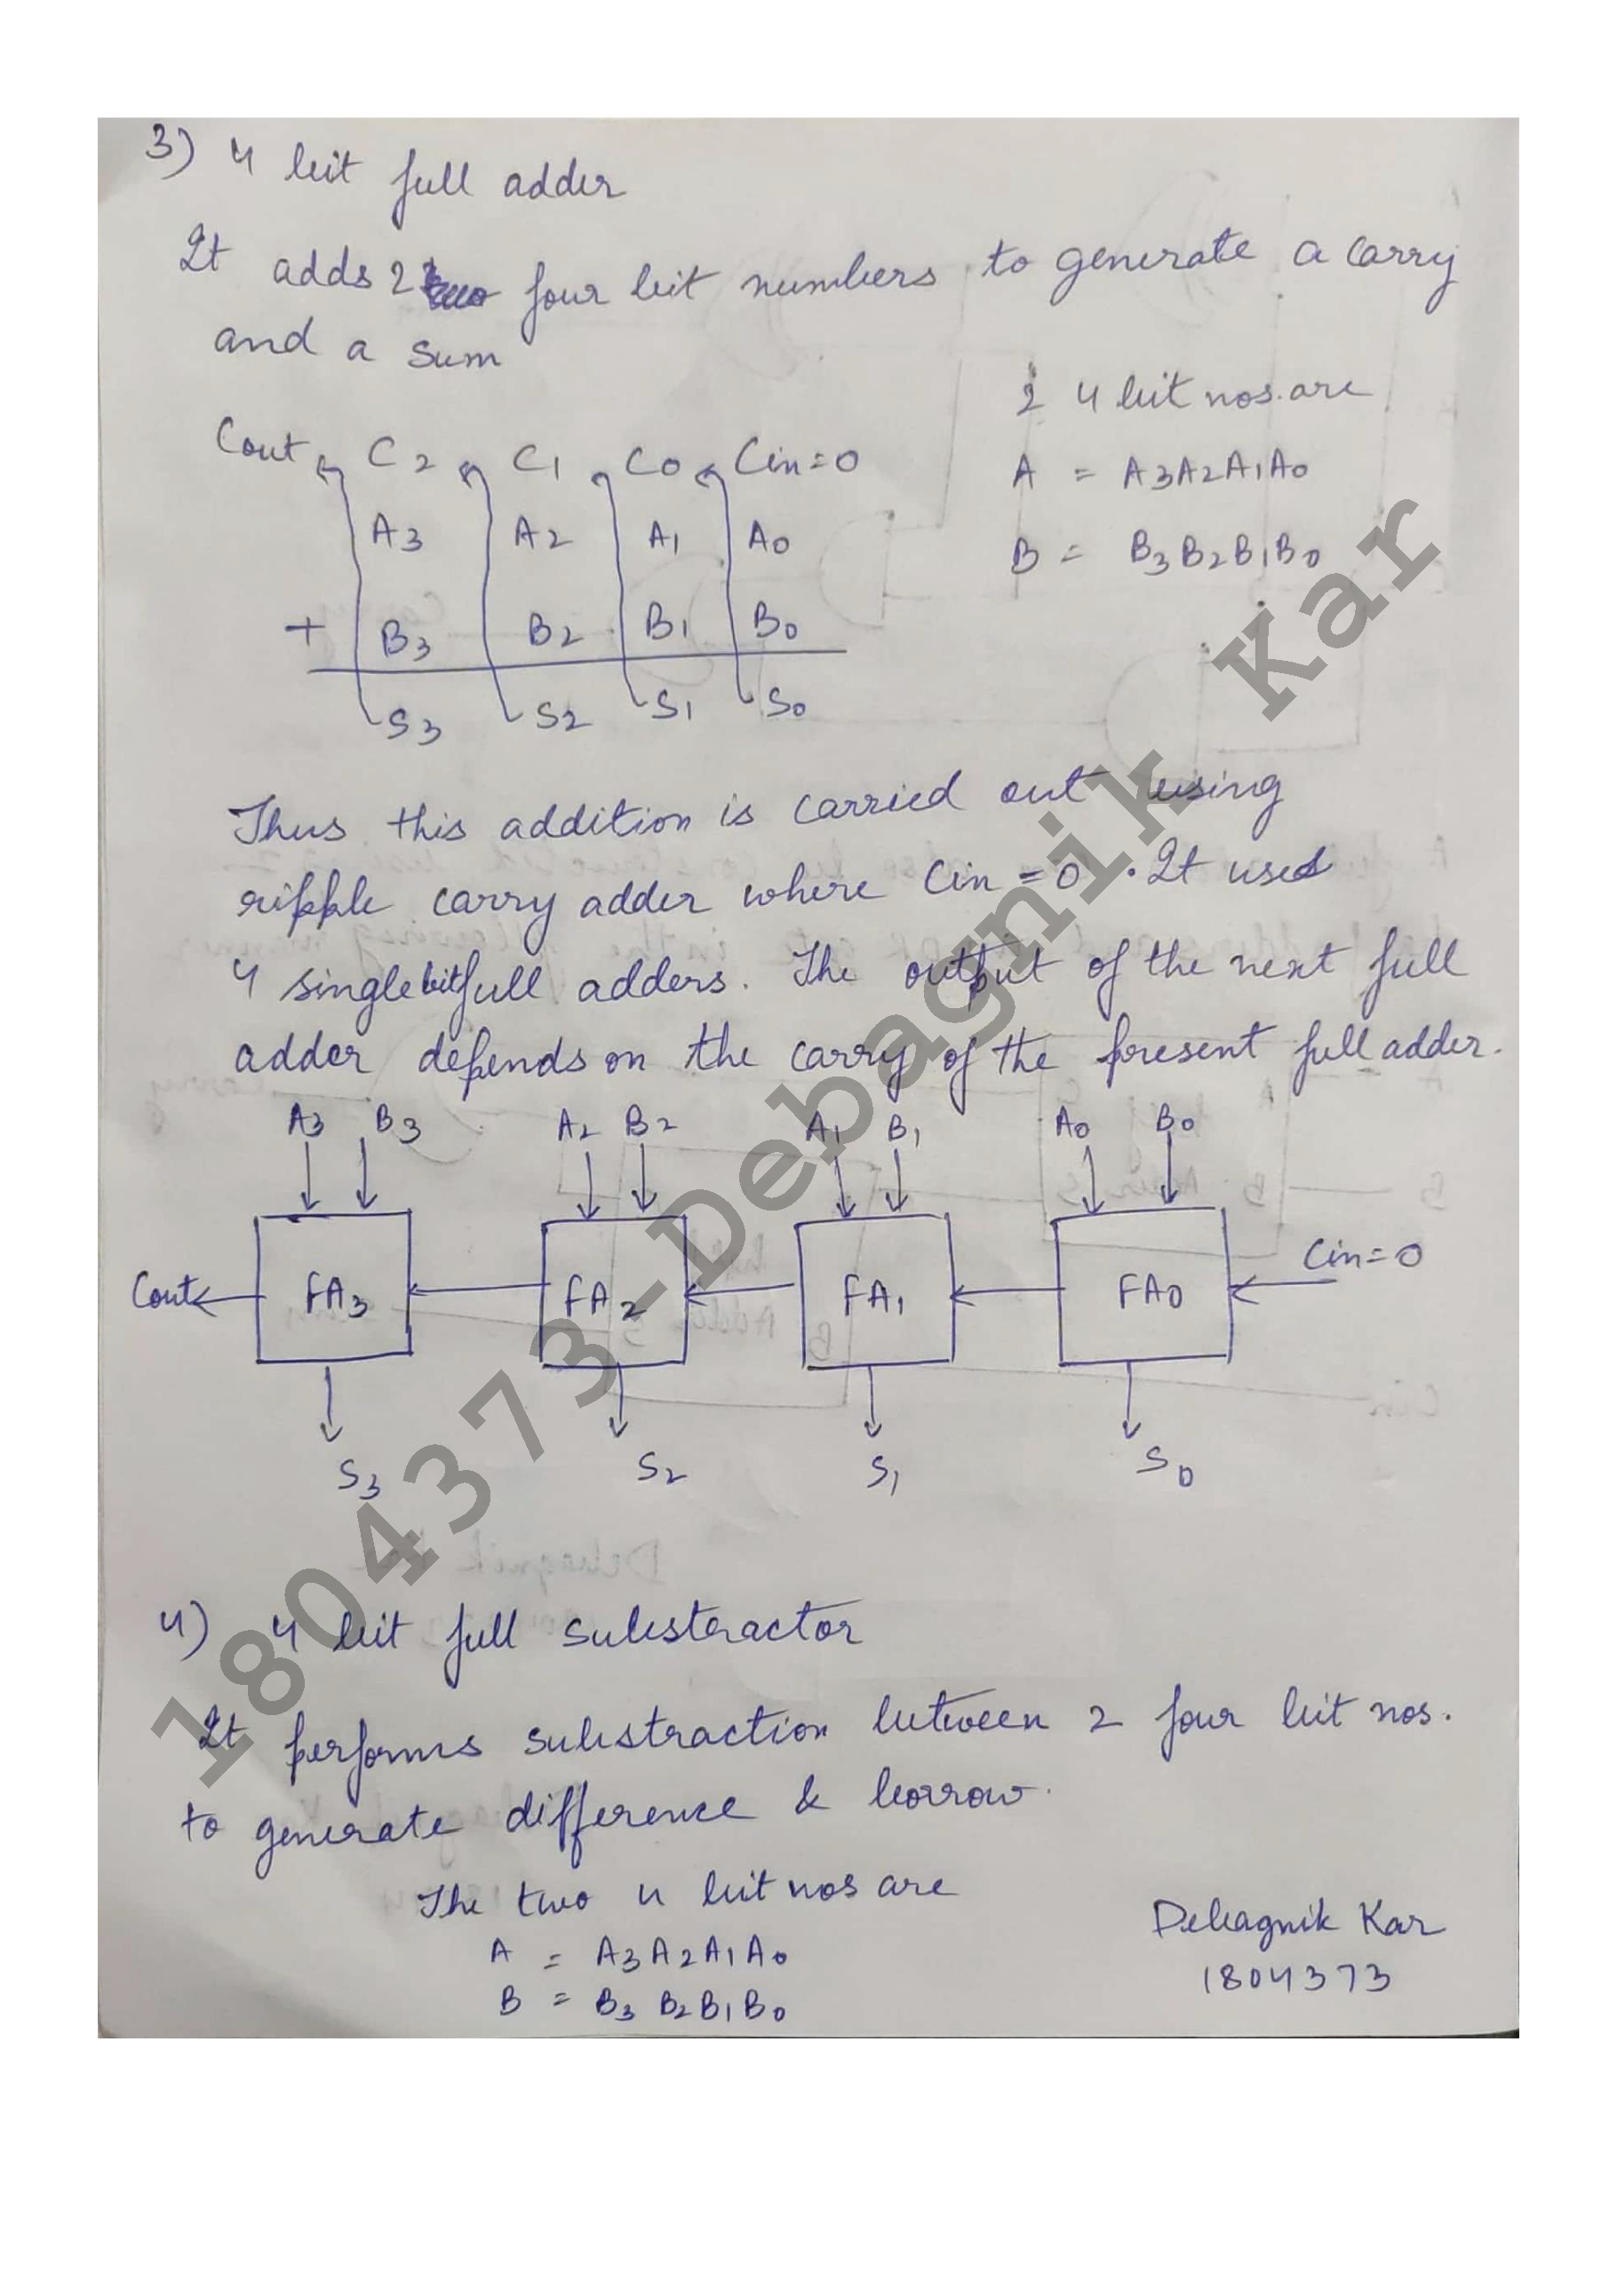 3) 4 bit full adder
It adds 2 four bit numbers to generate a carry
and a sum
2 4 bit nos. are
Cout C2 C1 C0 Cin=0
A = A3A2A1A0
A3 A2 A1 A0
B = B3B2B1B0
+ B3 B2 B1 B0
S3 S2 S1 S0
Thus this addition is carried out using
ripple carry adder where Cin = 0. It used
4 single bit full adders. The output of the next full
adder depends on the carry of the present full adder.
A3 B3 A2 B2 A1 B1 A0 B0
Cin=0
Cout FA3 FA2 FA1 FA0
S3 S2 S1 S0
4) 4 bit full substractor
It performs substraction between 2 four bit nos.
to generate difference & borrow.
The two 4 bit nos are
A = A3A2A1A0
B = B3B2B1B0
Debagnik Kar
1804373
1804373-Debagnik Kar